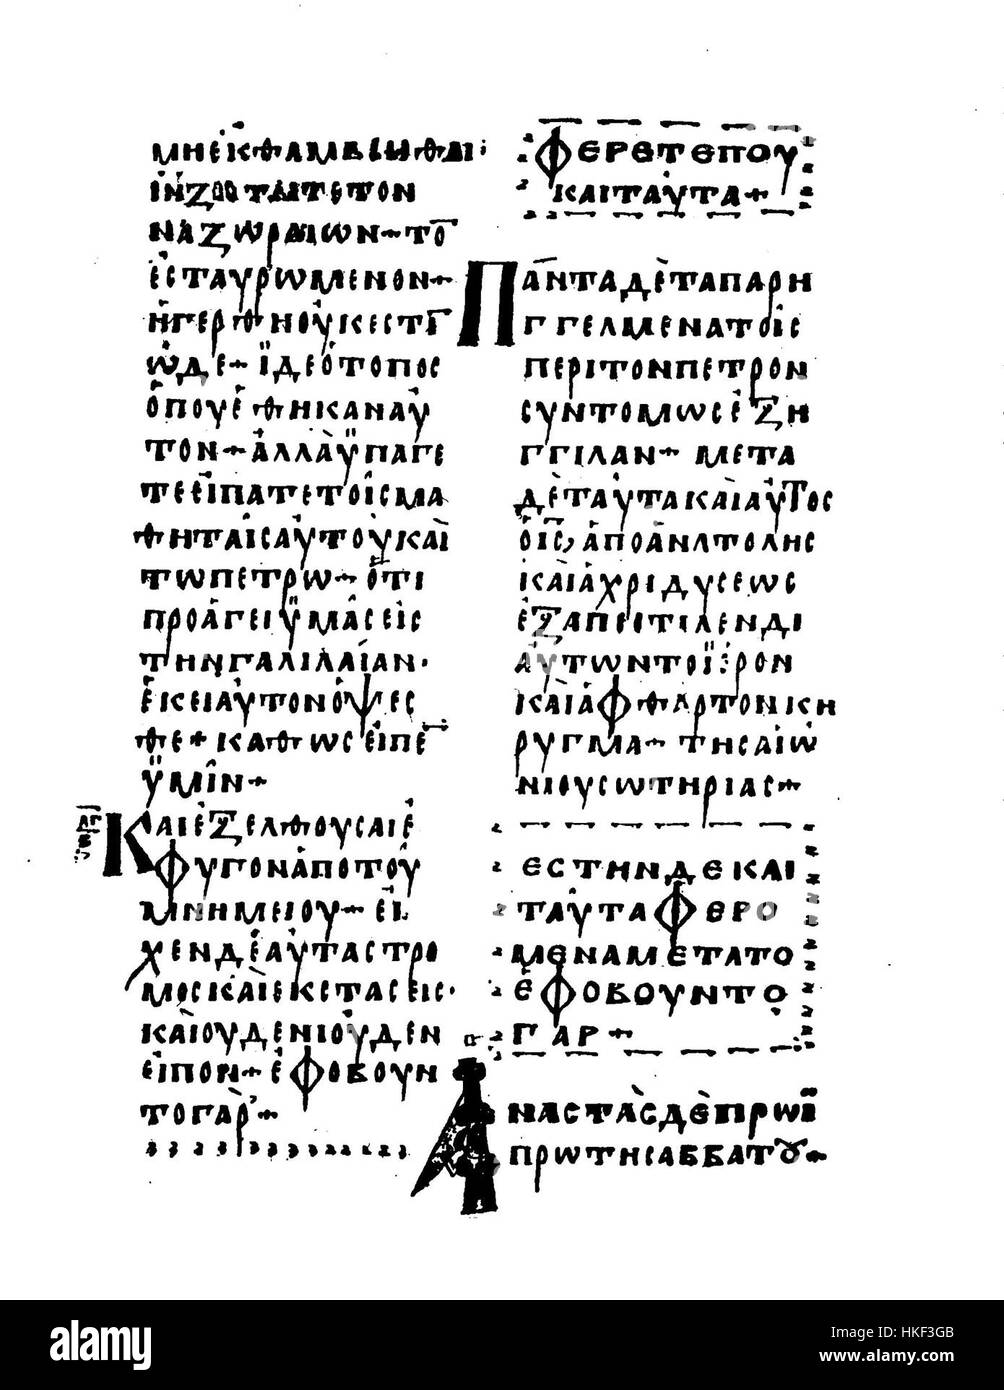 ΜΗΕΚΘΑΜΒΕΙΣΘΑΙ·
ΙΝΖΗΤΕΙΤΕΤΟΝ
ΝΑΖΩΡΑΙΟΝ+ΤΟ̅
ἘΣΤΑΥΡΩΜΕΝΟΝ+
ἨΓΕΡΘΗΟΥΚΕΣΤΙ̅
ὩΔΕ+ΪΔΕὉΤΟΠΟΣ
ὍΠΟΥἘΘΗΚΑΝΑΥ
ΤΟΝ+ἈΛΛᾺΫΠΑΓΕ
ΤΕΕΙΠΑΤΕΤΟΙΣΜΑ
ΘΗΤΑΙΣΑΥΤΟΥΚΑῚ
ΤΩΠΕΤΡΩ+ὍΤΙ
ΠΡΟΆΓΕΙΫΜΑΣΕΙΣ
ΤΗΝΓΑΛΙΛΑΊΑΝ·
ἘΚΕΙΑΥΤΟΝΟΨΕΣ
ΘΕ+ΚΑΘΩΣΕΙΠΕ
ΫΜΙΝ+
ΚΑΙἘΞΕΛΘΟΥΣΑΙἘ
ΦΥΓΟΝἈΠΟΤΟΥ
ΜΝΗΜΕΙΟΥ+ΕΙ
ΧΕΝΔΕΑΥΤΑΣΤΡΟ
ΜΟΣΚΑΙΕΚΣΤΑΣΕΙΣ·
ΚΑῚΟΥΔΕΝΙΟΥΔΕΝ
ΕΙΠΟΝ+ἘΦΟΒΟΥΝ
ΤΟΓᾺΡ+
ΦΕΡΕΤΕΠΟΥ
ΚΑΙΤΑΥΤΑ+
ΠΑΝΤΑΔῈΤΑΠΑΡΗ
ΓΓΕΛΜΕΝΑΤΟΙΣ
ΠΕΡΙΤΟΝΠΕΤΡΟΝ
ΣΥΝΤΟΜΩΣἘΞΗ
ΓΓΙΛΑΝ+ΜΕΤΑ
ΔῈΤΑΥΤΑΚΑΙΑΥΤΟΣ
ὉΙΣ̅,ἈΠΟἈΝΑΤΟΛΗΣ
ΚΑΙἈΧΡΙΔΥΣΕΩΣ
ἘΞΑΠΕΣΤΙΛΕΝΔΙ
ΑΥΤΩΝΤΟΪΕΡΟΝ
ΚΑΙἈΦΘΑΡΤΟΝΚΗ
ΡΥΓΜΑ+ΤΗΣΑΙΩ
ΝΙΟΥΣΩΤΗΡΙΑΣ+
ΕΣΤΗΝΔΕΚΑΙ
ΤΑΥΤΑΦΕΡΟ
ΜΕΝΑΜΕΤΑΤΟ
ἘΦΟΒΟΥΝΤΟ
ΓΑΡ+
ΑΝΑΣΤᾺΣΔῈΠΡΩΪ
ΠΡΩΤΗΣΑΒΒΑΤΟΥ+
alamy
Image ID: HKF3GB
www.alamy.com